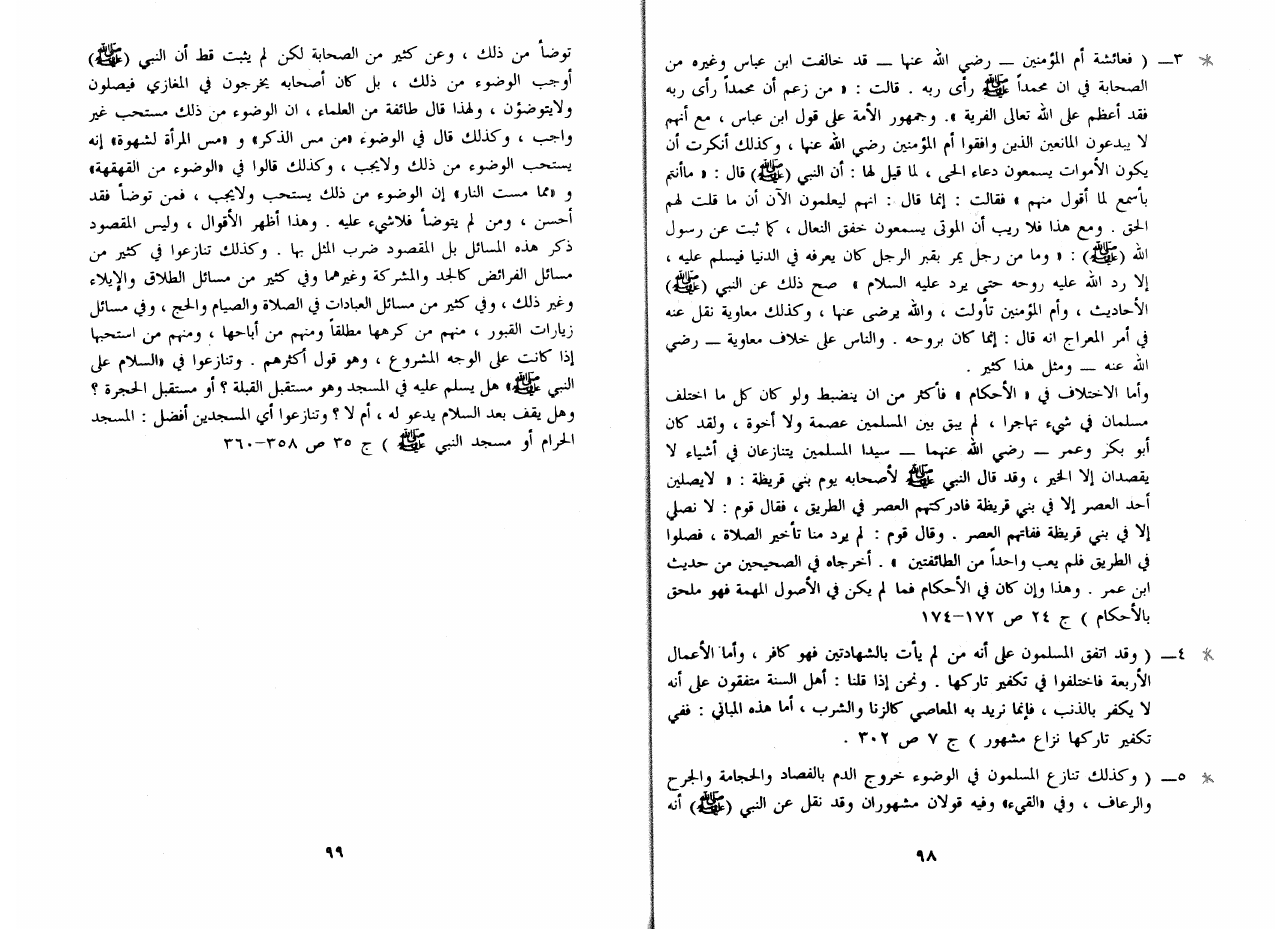 * ٣ــ ( فعائشة أم المؤمنين ــ رضي الله عنها ــ قد خالفت ابن عباس وغيره من
الصحابة في ان محمداً ﷺ رأى ربه . قالت : « من زعم أن محمداً رأى ربه
فقد أعظم على الله تعالى الفرية ». وجمهور الأمة على قول ابن عباس ، مع أنهم
لا يبدعون المانعين الذين وافقوا أم المؤمنين رضي الله عنها ، وكذلك أنكرت أن
يكون الأموات يسمعون دعاء الحى ، لما قيل لها : أن النبي (ﷺ) قال : « ماأنتم
بأسمع لما أقول منهم » فقالت : إنما قال : انهم ليعلمون الآن أن ما قلت لهم
الحق . ومع هذا فلا ريب أن الموتى يسمعون خفق النعال ، كما ثبت عن رسول
الله (ﷺ) : « وما من رجل يمر بقبر الرجل كان يعرفه في الدنيا فيسلم عليه ،
إلا رد الله عليه روحه حتى يرد عليه السلام » صح ذلك عن النبي (ﷺ)
الأحاديث ، وأم المؤمنين تأولت ، والله يرضى عنها ، وكذلك معاوية نقل عنه
في أمر المعراج انه قال : إنما كان بروحه . والناس على خلاف معاوية ــ رضي
الله عنه ــ ومثل هذا كثير .
وأما الاختلاف في « الأحكام » فأكثر من ان ينضبط ولو كان كل ما اختلف
مسلمان في شيء تهاجرا ، لم يبق بين المسلمين عصمة ولا أخوة ، ولقد كان
أبو بكر وعمر ــ رضي الله عنهما ــ سيدا المسلمين يتنازعان في أشياء لا
يقصدان إلا الخير ، وقد قال النبي ﷺ لأصحابه يوم بني قريظة : « لايصلين
أحد العصر إلا في بني قريظة فادركتهم العصر في الطريق ، فقال قوم : لا نصلي
إلا في بني قريظة ففاتهم العصر . وقال قوم : لم يرد منا تأخير الصلاة ، فصلوا
في الطريق فلم يعب واحداً من الطائفتين » . أخرجاه في الصحيحين من حديث
ابن عمر . وهذا وإن كان في الأحكام فما لم يكن في الأصول المهمة فهو ملحق
بالأحكام ) ج ٢٤ ص ١٧٢–١٧٤
* ٤ــ ( وقد اتفق المسلمون على أنه من لم يأت بالشهادتين فهو كافر ، وأما الأعمال
الأربعة فاختلفوا في تكفير تاركها . ونحن إذا قلنا : أهل السنة متفقون على أنه
لا يكفر بالذنب ، فإنما نريد به المعاصي كالزنا والشرب ، أما هذه المباني : ففي
تكفير تاركها نزاع مشهور ) ج ٧ ص ٣٠٢ .
* ٥ــ ( وكذلك تنازع المسلمون في الوضوء خروج الدم بالفصاد والحجامة والجرح
والرعاف ، وفي «القيء» وفيه قولان مشهوران وقد نقل عن النبي (ﷺ) أنه
٩٨
توضأ من ذلك ، وعن كثير من الصحابة لكن لم يثبت قط أن النبي (ﷺ)
أوجب الوضوء من ذلك ، بل كان أصحابه يخرجون في المغازي فيصلون
ولايتوضؤن ، ولهذا قال طائفة من العلماء ، ان الوضوء من ذلك مستحب غير
واجب ، وكذلك قال في الوضوء «من مس الذكر» و «مس المرأة لشهوة» إنه
يستحب الوضوء من ذلك ولايجب ، وكذلك قالوا في «الوضوء من القهقهة»
و «مما مست النار» إن الوضوء من ذلك يستحب ولايجب ، فمن توضأ فقد
أحسن ، ومن لم يتوضأ فلاشيء عليه . وهذا أظهر الأقوال ، وليس المقصود
ذكر هذه المسائل بل المقصود ضرب المثل بها . وكذلك تنازعوا في كثير من
مسائل الفرائض كالجد والمشركة وغيرهما وفي كثير من مسائل الطلاق والإيلاء
وغير ذلك ، وفي كثير من مسائل العبادات في الصلاة والصيام والحج ، وفي مسائل
زيارات القبور ، منهم من كرهها مطلقاً ومنهم من أباحها ، ومنهم من استحبها
إذا كانت على الوجه المشروع ، وهو قول أكثرهم . وتنازعوا في «السلام على
النبي ﷺ» هل يسلم عليه في المسجد وهو مستقبل القبلة ؟ أو مستقبل الحجرة ؟
وهل يقف بعد السلام يدعو له ، أم لا ؟ وتنازعوا أي المسجدين أفضل : المسجد
الحرام أو مسجد النبي ﷺ ) ج ٣٥ ص ٣٥٨–٣٦٠
٩٩